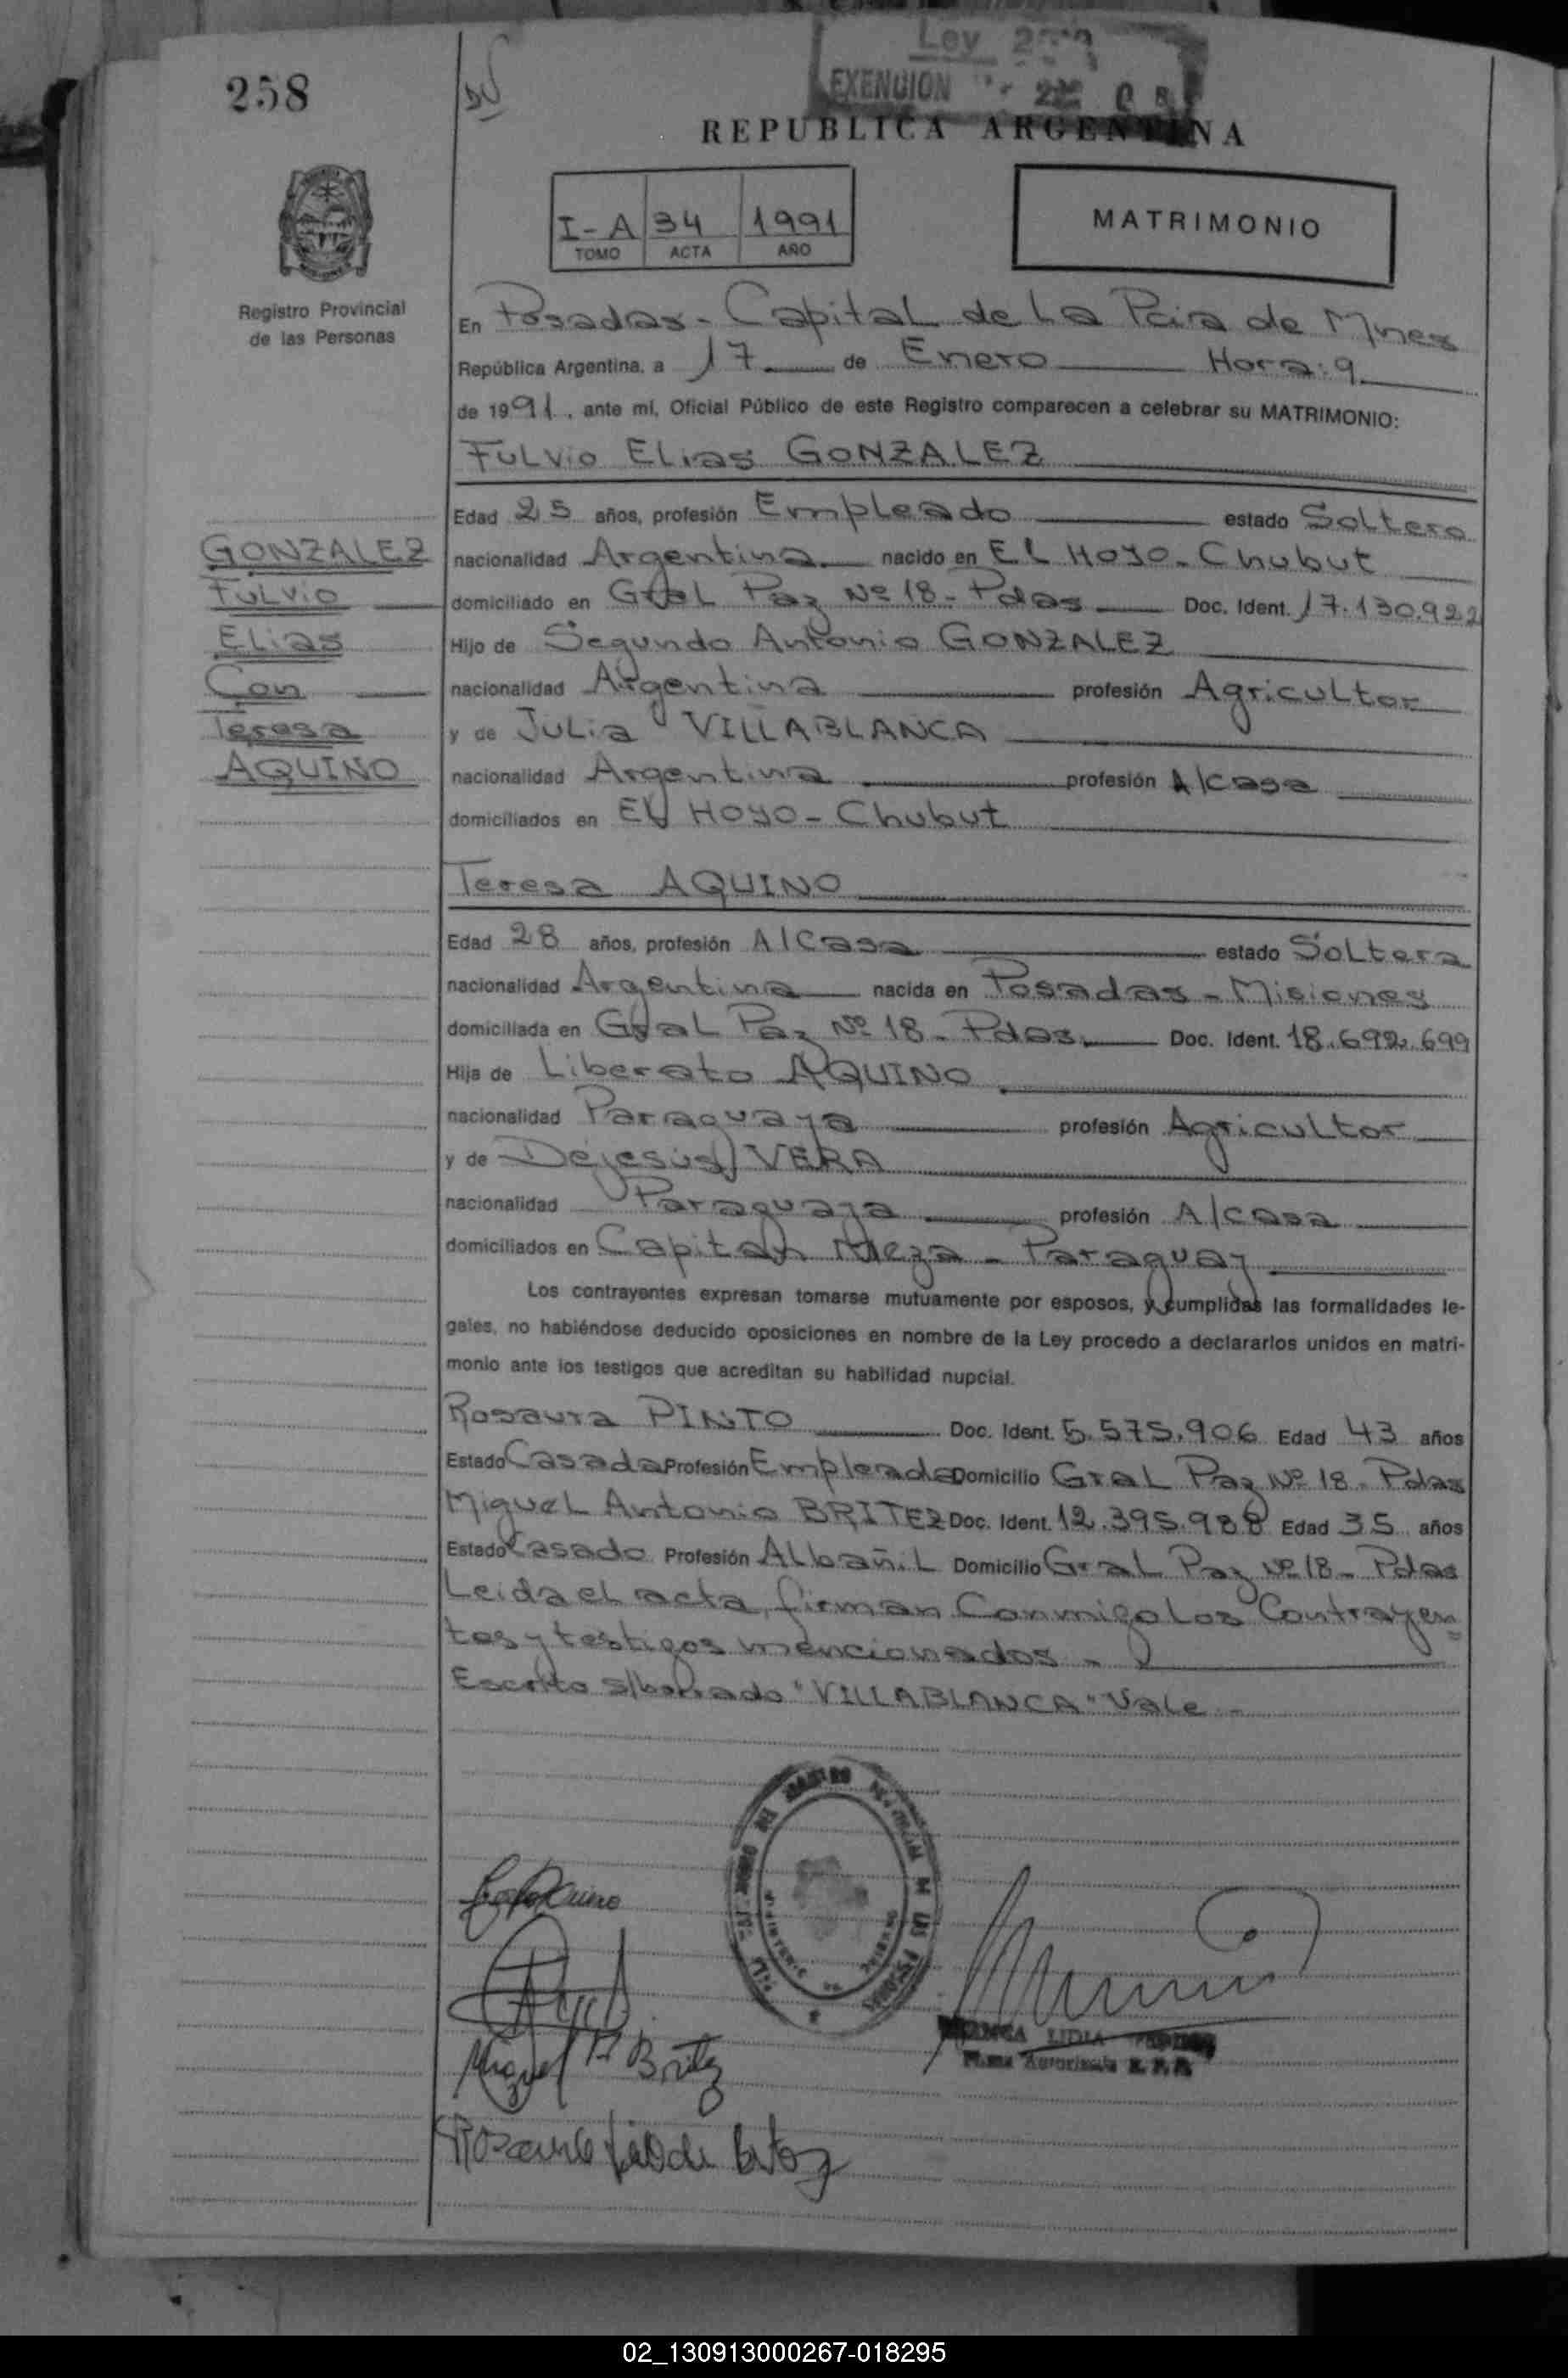 258
Ley
EXENCION
REPUBLICA ARGENTINA
I-A 34 1991
TOMO ACTA AÑO
MATRIMONIO
Registro Provincial
de las Personas
En Posadas - Capital de La Pcia de Mnes
República Argentina, a 17 de Enero Hora: 9
de 1991, ante mí, Oficial Público de este Registro comparecen a celebrar su MATRIMONIO:
Fulvio Elias GONZALEZ
Edad 25 años, profesión Empleado estado Soltero
nacionalidad Argentina nacido en EL HOYO - Chubut
domiciliado en Gral Paz Nº 18 - Pdas Doc. Ident. 17.130.922
Hijo de Segundo Antonio GONZALEZ
nacionalidad Argentina profesión Agricultor
y de Julia VILLABLANCA
nacionalidad Argentina profesión A/casa
domiciliados en EL HOYO - Chubut
GONZALEZ
Fulvio
Elias
Con
Teresa
AQUINO
Teresa AQUINO
Edad 28 años, profesión A/Casa estado Soltera
nacionalidad Argentina nacida en Posadas - Misiones
domiciliada en Gral Paz Nº 18 - Pdas Doc. Ident. 18.692.699
Hija de Liberato AQUINO
nacionalidad Paraguaya profesión Agricultor
y de Dejesús VERA
nacionalidad Paraguaya profesión A/casa
domiciliados en Capitan Meza - Paraguay
Los contrayentes expresan tomarse mutuamente por esposos, y cumplidas las formalidades le-
gales, no habiéndose deducido oposiciones en nombre de la Ley procedo a declararlos unidos en matri-
monio ante los testigos que acreditan su habilidad nupcial.
Rosaura PINTO Doc. Ident. 5.575.906 Edad 43 años
Estado Casada Profesión Empleada Domicilio Gral Paz Nº 18 - Pdas
Miguel Antonio BRITEZ Doc. Ident. 12.395.988 Edad 35 años
Estado Casado Profesión Albañil Domicilio Gral Paz Nº 18 - Pdas
Leida el acta, firman Conmigo Los Contrayen=
tes y testigos mencionados -
Escrito s/borrado "VILLABLANCA" Vale -
Miguel A Britez
LIDIA
Firma Autorizada R. P. P.
02_130913000267-018295